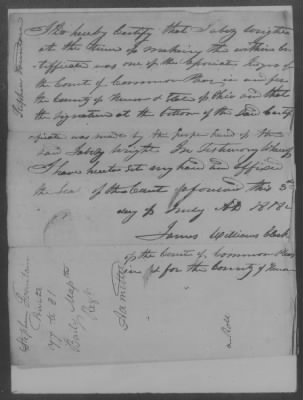 I do hereby Certify that Jabez Wright
at the time of making the within cer
tificate was one of the Associate Judges of
the Court of Common Pleas in and for
the County of Huron & State of Ohio and that
the Signature at the bottom of the said Certif
icate was made by the proper hand of the
said Jabez Wright. In Testimony Whereof
I have hereto set my hand and affixed
the Seal of the Court aforesaid this
day of July AD 1818
James Williams Clerk
of the Court of Common Pleas
in & for the County of Huron
Stephen Hamilton
Stephen Hamilton
Private
77 to 81
Baily
Regt
Hamilton